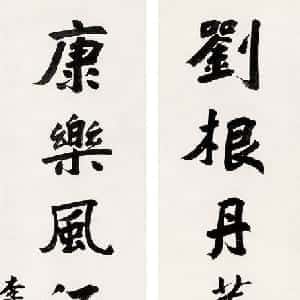 劉根丹
康樂風